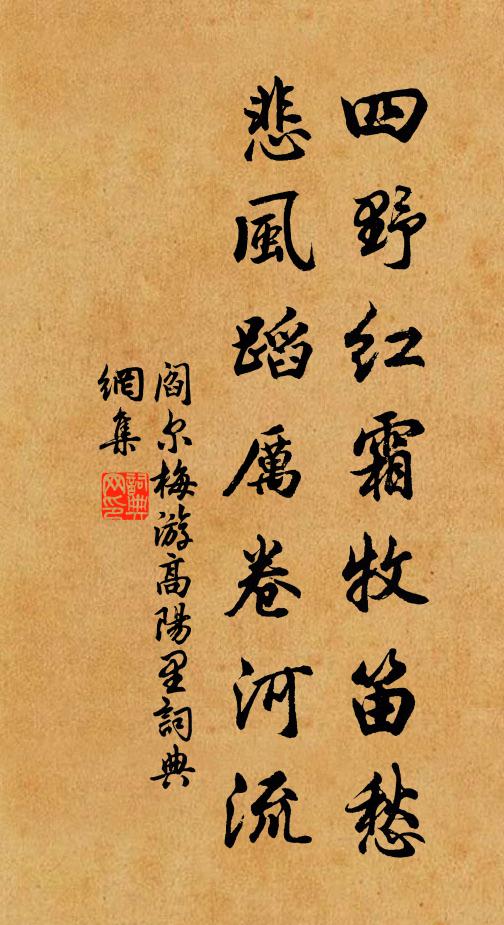 四野红霜牧笛愁
悲風蹈厲卷河流
阎尔梅游高陽里詞典
網集
詞典網印